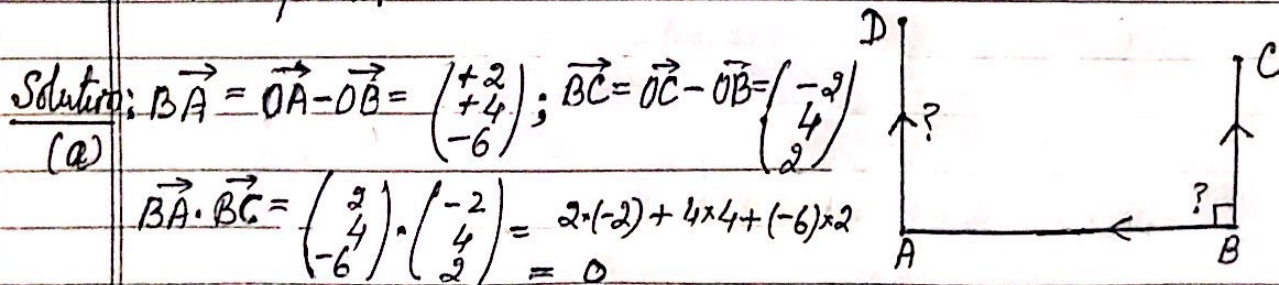 Solution: BA→ = OA→ - OB→ = (+2 +4 -6); BC→ = OC→ - OB→ = (-2 4 2)
(a)
BA→ · BC→ = (2 4 -6) · (-2 4 2) = 2×(-2) + 4×4 + (-6)×2
= 0
D
C
?
?
A
B